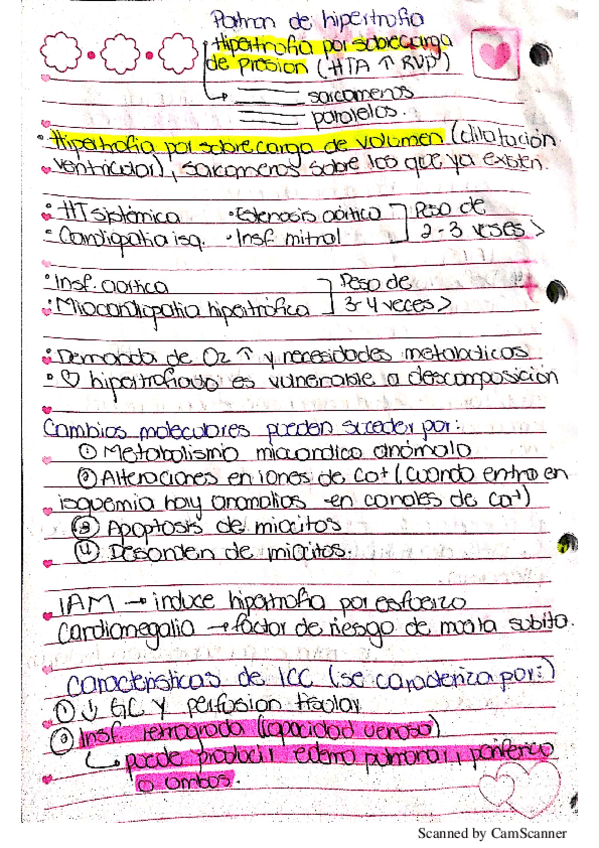 Patron de hipertrofia
Hipertrofia por sobrecarga
de presion (HTA ↑ RVP)
sarcomeros
paralelos.
• Hipertrofia por sobrecarga de volumen (dilatación
ventricular), sarcomeros sobre los que ya existen.
• HT sistémica • Estenosis aórtica Peso de
• Cardiopatia isq. • Insf. mitral 2-3 veses >
• Insf. aortica Peso de
• Miocardiopatia hipertrófica 3-4 veces >
• Demanda de O2 ↑ y necesidades metabolicos
• ♡ hipertrofiado es vulnerable a descomposición
Cambios moleculares pueden suceder por:
① Metabolismo miocardico anómalo
② Alteraciones en iones de Ca+ (cuando entro en
isquemia hay anomalias en canales de Ca+)
③ Apoptosis de miocitos
④ Desorden de miocitos.
IAM → induce hipertrofia por esfuerzo
Cardiomegalia → factor de riesgo de muerte subita.
Caracteristicas de ICC (se caracteriza por:)
① ↓ GC y perfusion tisular
② Insf. retrograda (capacidad venosa)
puede producir edema pulmonar, periferico
o ambos.
Scanned by CamScanner